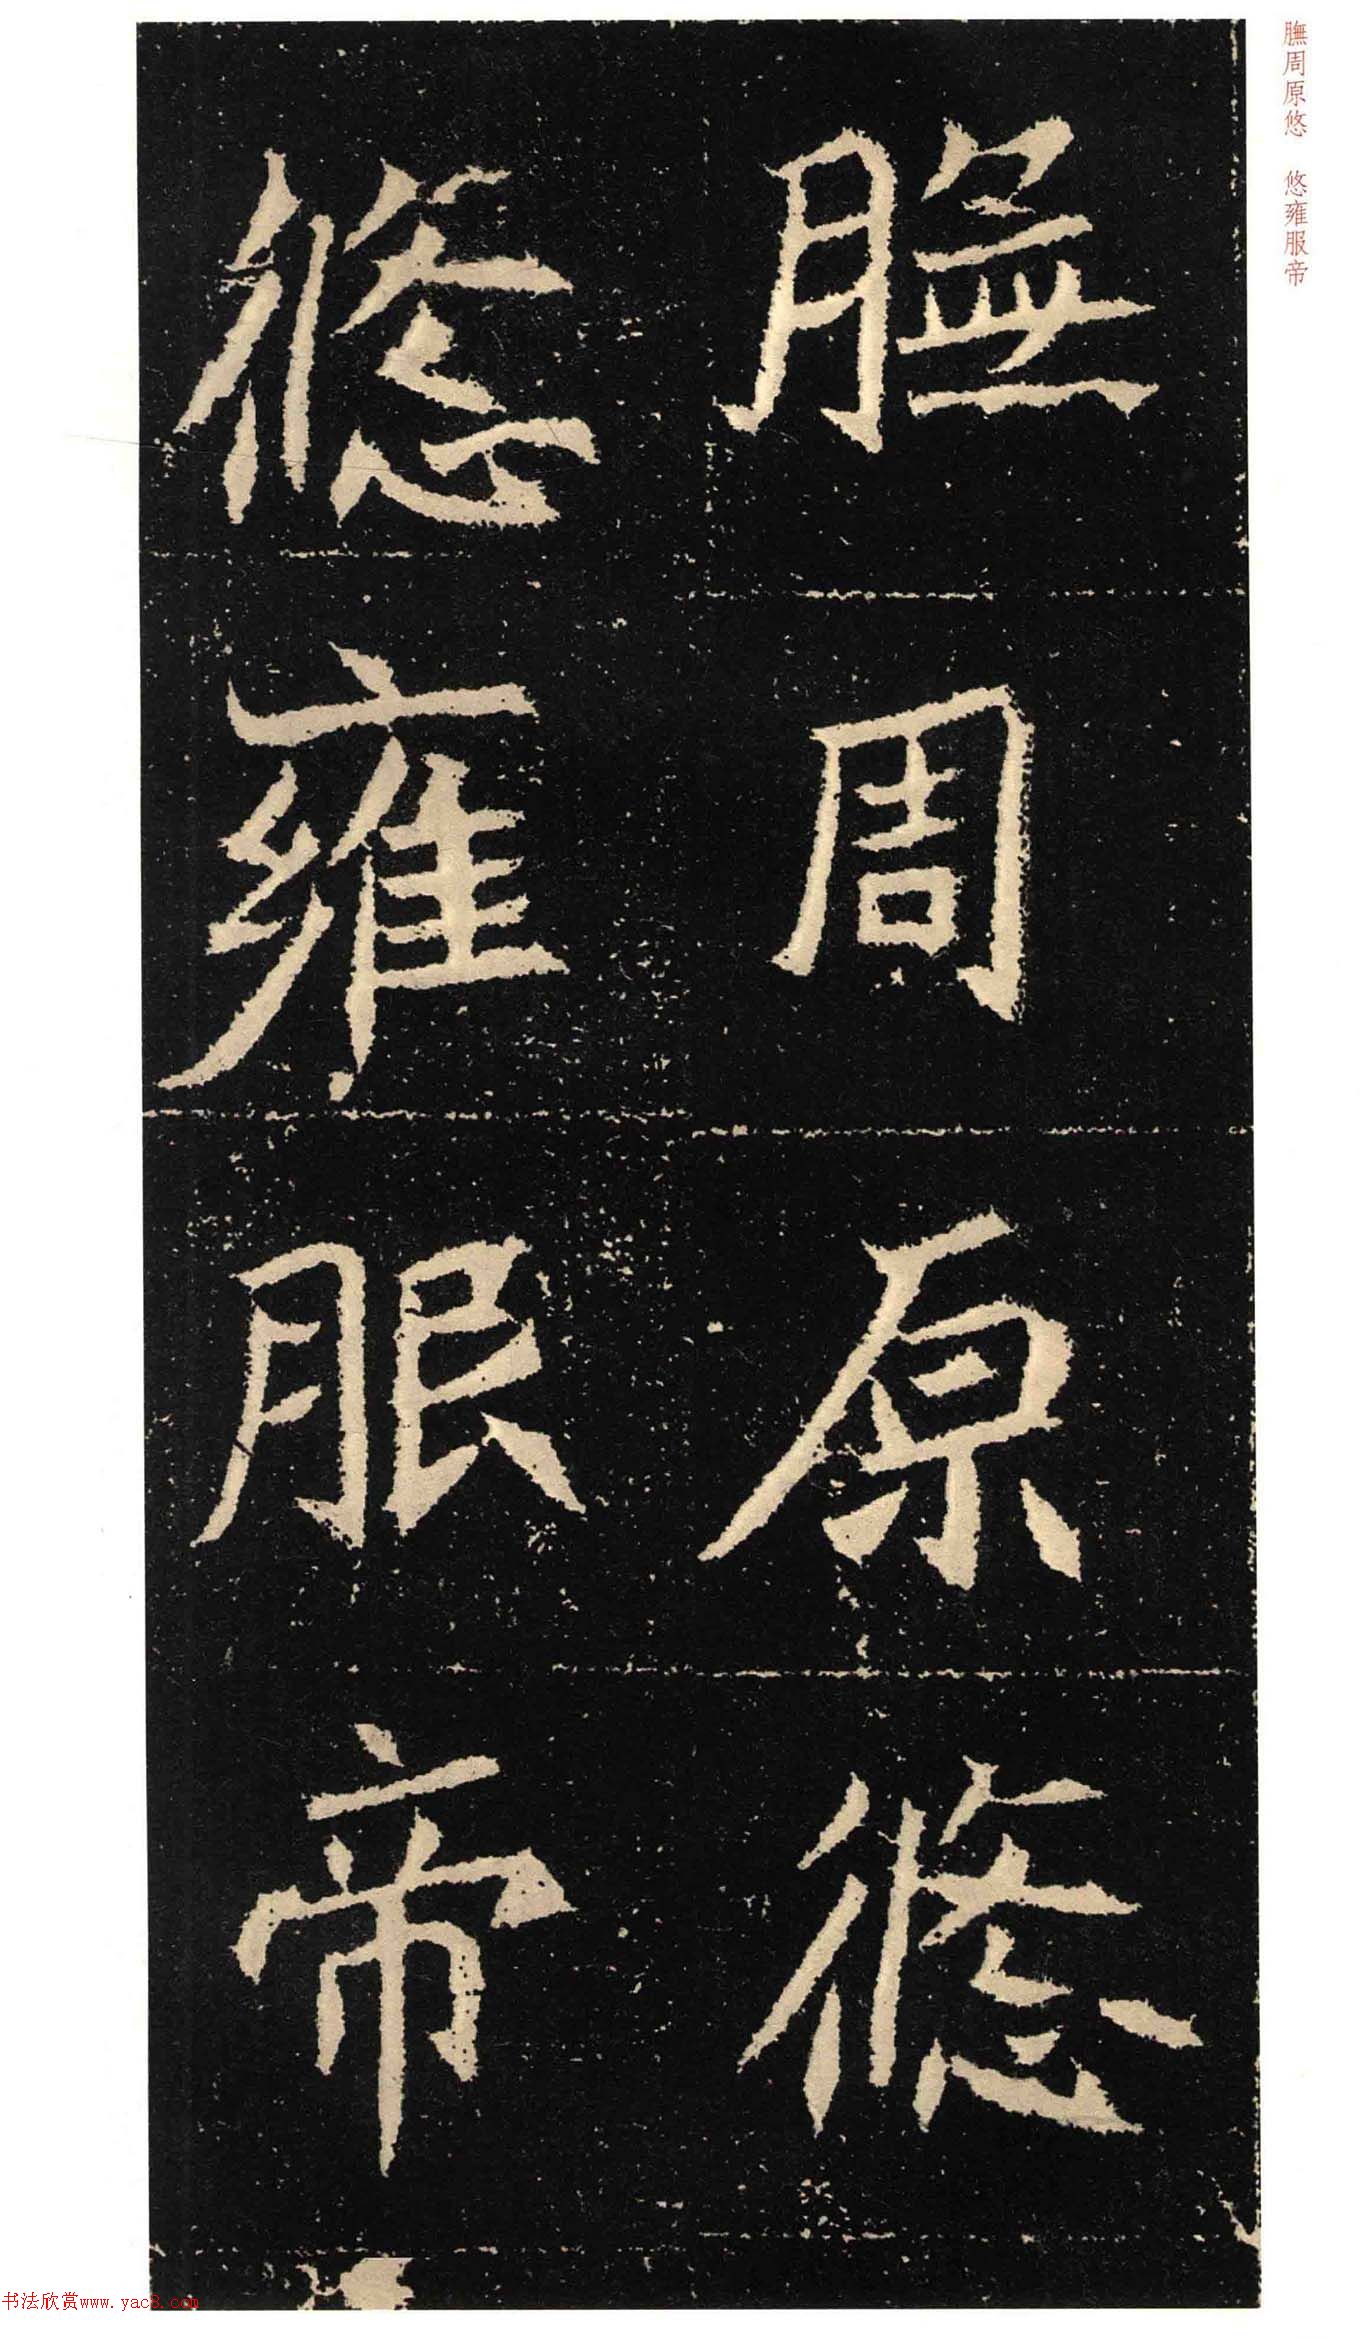 膴周原悠
悠雍服帝
膴周原悠 悠雍服帝
书法欣赏www.yac8.com